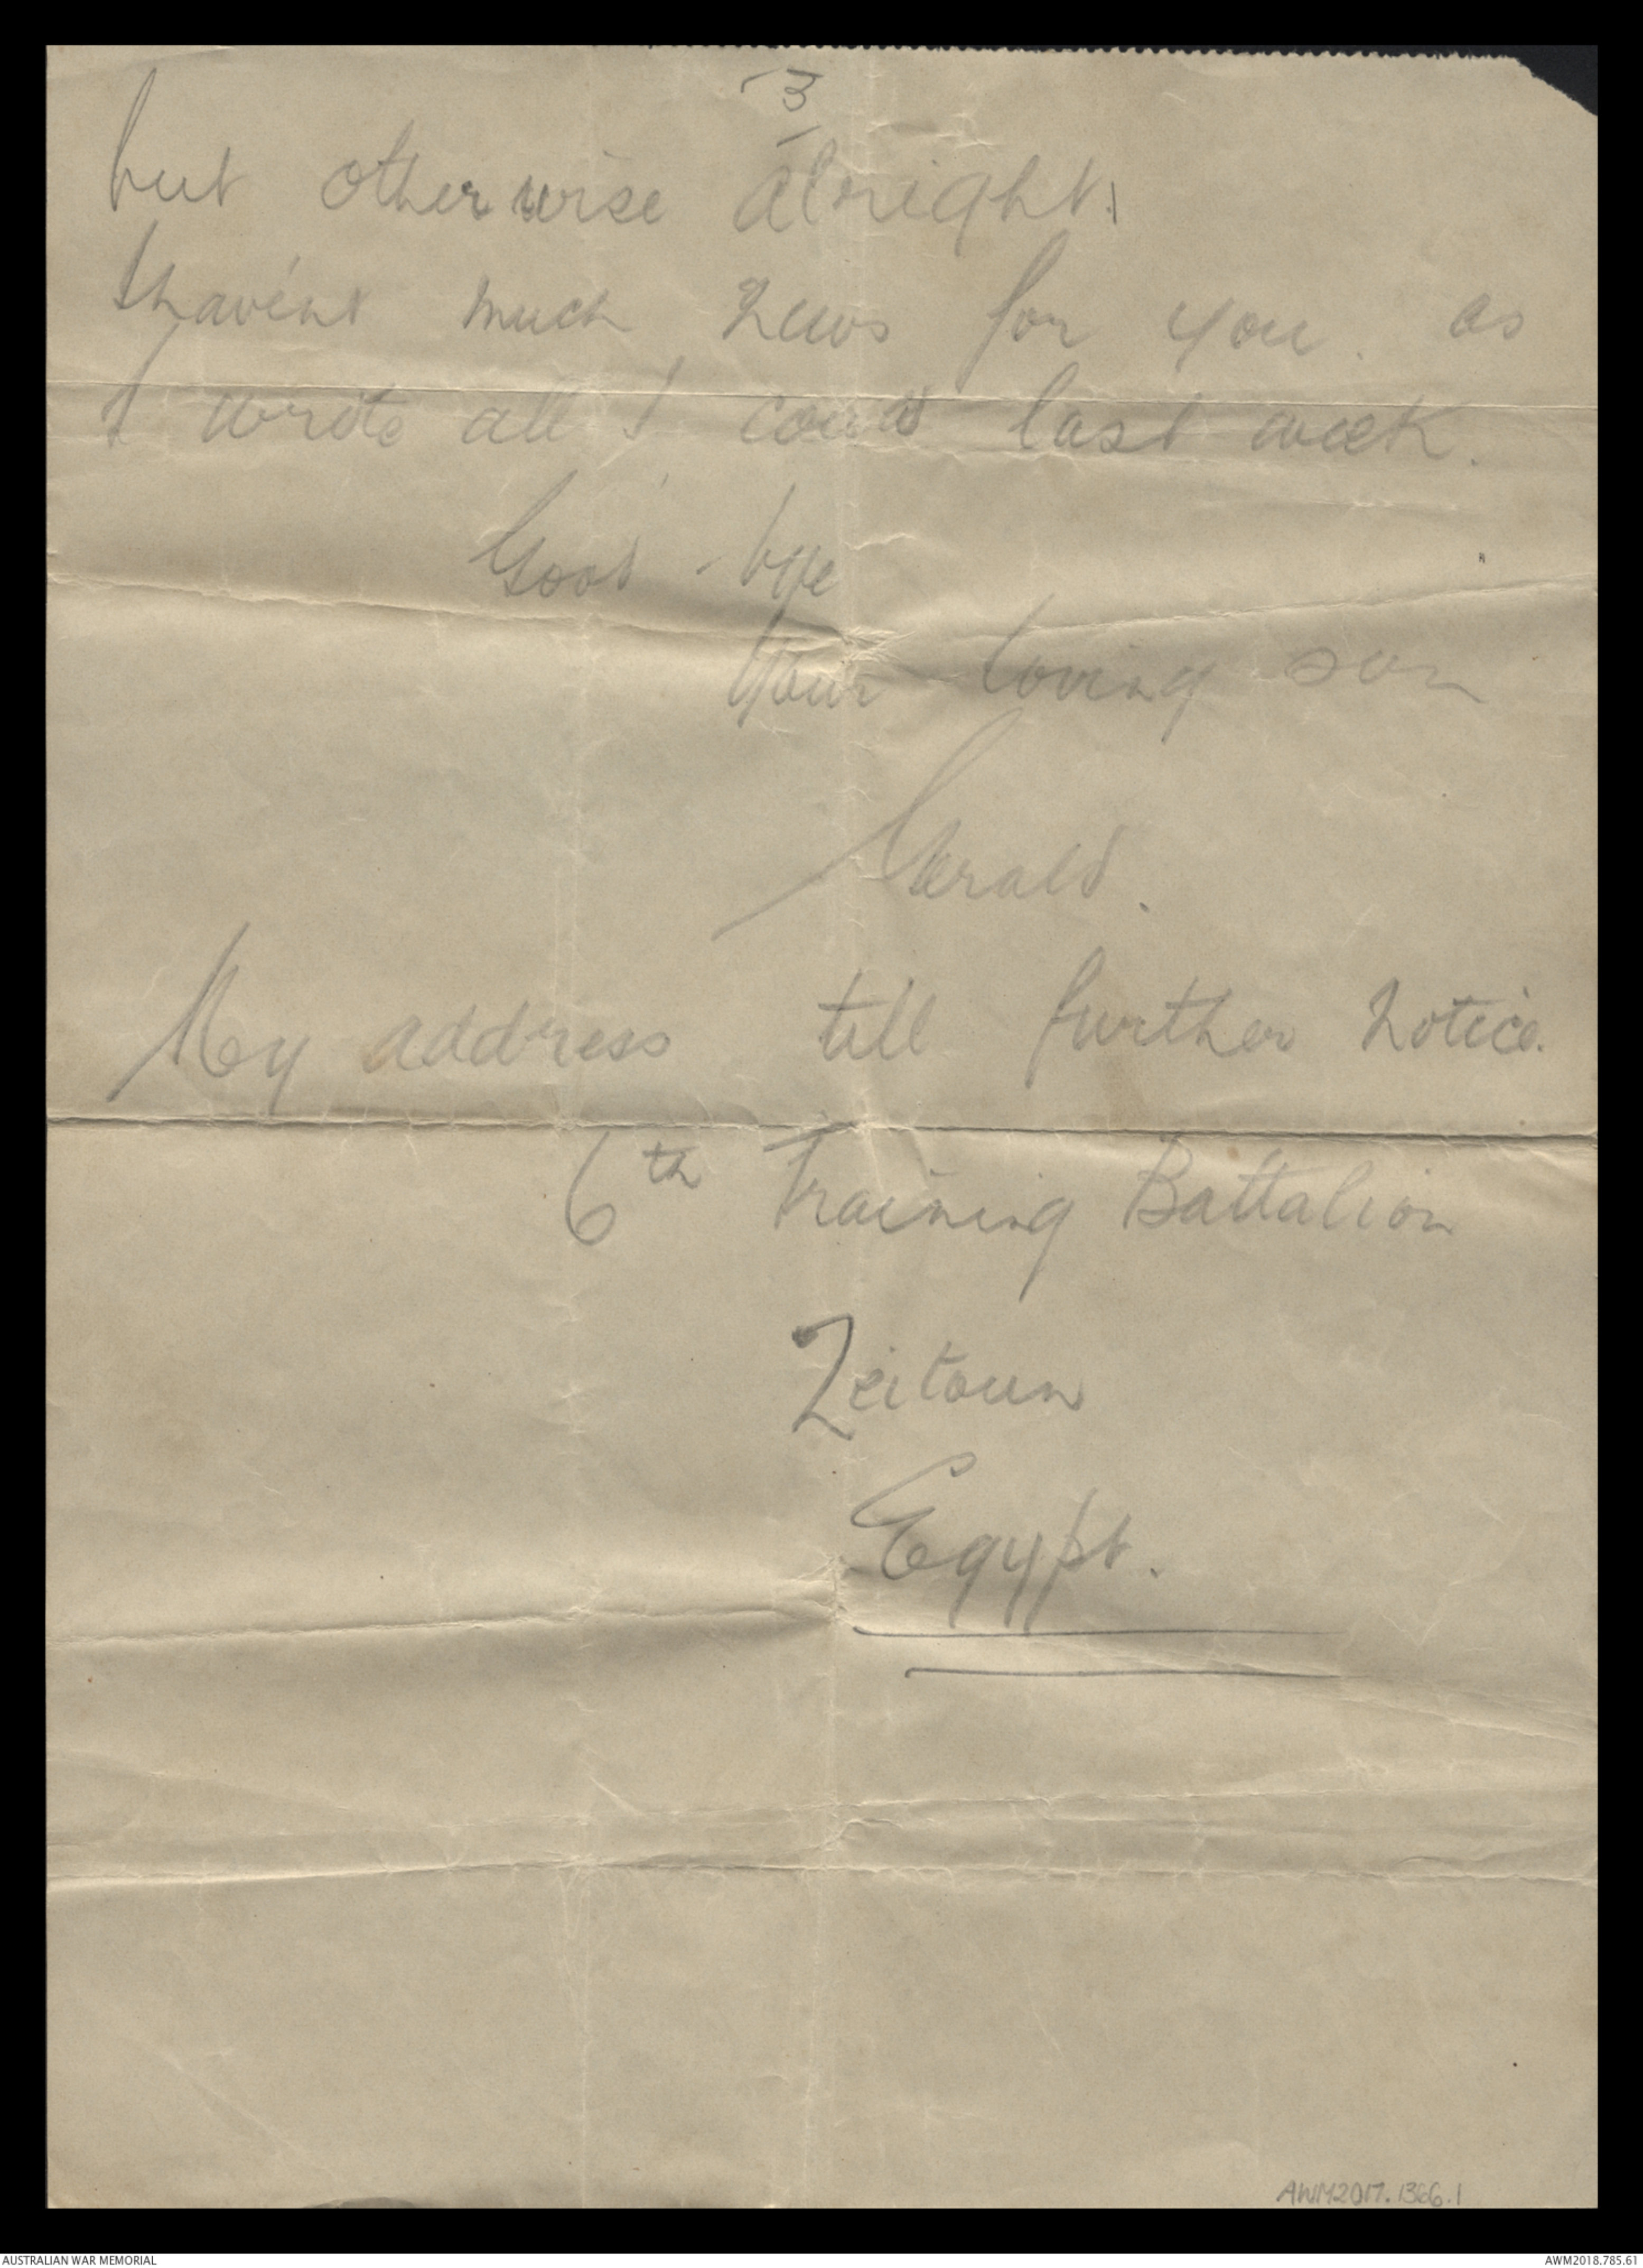 3
but otherwise alright.
I havent much news for you. as
I wrote all I could last week.
Good-bye
Your loving son
Gerald.
My address till further notice.
6th Training Battalion
Zeitoun
Egypt.
AWM2017.1366.1
AUSTRALIAN WAR MEMORIAL
AWM2018.785.61